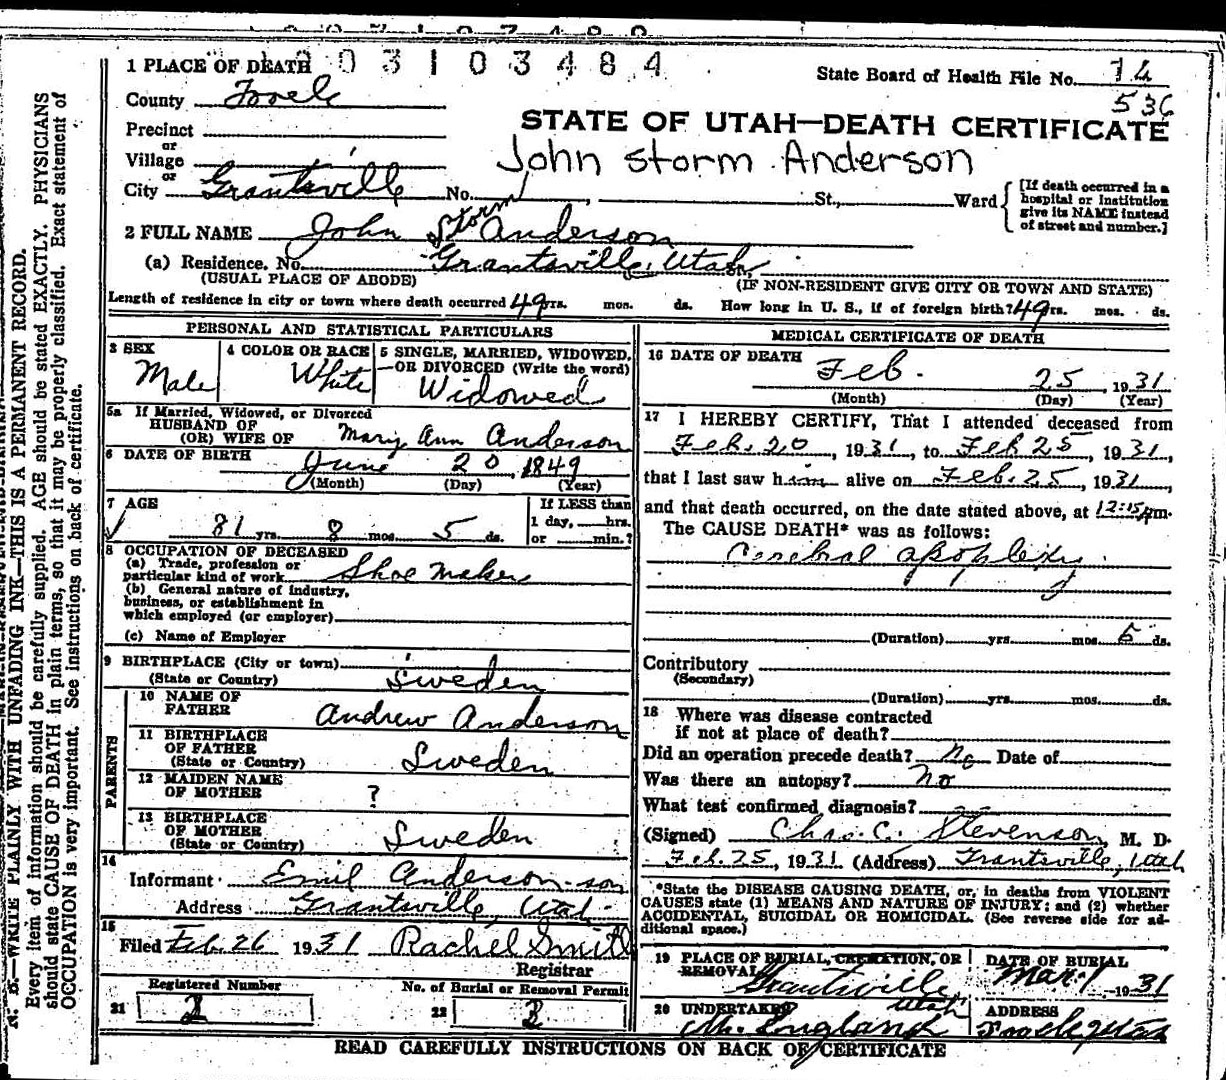 03103484
1 PLACE OF DEATH
State Board of Health File No. 14
536
County Tooele
STATE OF UTAH—DEATH CERTIFICATE
Precinct
or
Village
John Storm Anderson
or
City Grantsville No. St., Ward
[If death occurred in a
hospital or institution
give its NAME instead
of street and number.]
2 FULL NAME John Storm Anderson
(a) Residence. No. Grantsville, Utah St.,
(USUAL PLACE OF ABODE) (IF NON-RESIDENT GIVE CITY OR TOWN AND STATE)
Length of residence in city or town where death occurred 49 yrs. mos. ds. How long in U. S., if of foreign birth? 49 yrs. mos. ds.
PERSONAL AND STATISTICAL PARTICULARS
3 SEX
Male
4 COLOR OR RACE
White
5 SINGLE, MARRIED, WIDOWED,
OR DIVORCED (Write the word)
Widowed
5a If Married, Widowed, or Divorced
HUSBAND OF
(OR) WIFE OF Mary Ann Anderson
6 DATE OF BIRTH June 20, 1849
(Month) (Day) (Year)
7 AGE
81 yrs. 8 mos. 5 ds.
If LESS than
1 day, hrs.
or min.?
8 OCCUPATION OF DECEASED
(a) Trade, profession or
particular kind of work Shoe Maker
(b) General nature of industry,
business, or establishment in
which employed (or employer)
(c) Name of Employer
9 BIRTHPLACE (City or town)
(State or Country) Sweden
PARENTS
10 NAME OF
FATHER Andrew Anderson
11 BIRTHPLACE
OF FATHER
(State or Country) Sweden
12 MAIDEN NAME
OF MOTHER ?
13 BIRTHPLACE
OF MOTHER
(State or Country) Sweden
14
Informant Emil Anderson - son
Address Grantsville, Utah
15
Filed Feb. 26 1931 Rachel Smith
Registrar
Registered Number
21 2
No. of Burial or Removal Permit
22 2
MEDICAL CERTIFICATE OF DEATH
16 DATE OF DEATH
Feb. 25, 1931
(Month) (Day) (Year)
17 I HEREBY CERTIFY, That I attended deceased from
Feb. 20, 1931, to Feb 25, 1931,
that I last saw him alive on Feb. 25, 1931,
and that death occurred, on the date stated above, at 12:15 pm.
The CAUSE DEATH* was as follows:
Cerebral apoplexy
(Duration) yrs. mos. 5 ds.
Contributory
(Secondary)
(Duration) yrs. mos. ds.
18 Where was disease contracted
if not at place of death?
Did an operation precede death? No Date of
Was there an autopsy? No
What test confirmed diagnosis?
(Signed) Chas. C. Stevenson, M. D.
Feb. 25, 1931 (Address) Grantsville, Utah
*State the DISEASE CAUSING DEATH, or, in deaths from VIOLENT
CAUSES state (1) MEANS AND NATURE OF INJURY; and (2) whether
ACCIDENTAL, SUICIDAL OR HOMICIDAL. (See reverse side for ad-
ditional space.)
19 PLACE OF BURIAL, CREMATION, OR
REMOVAL Grantsville
Utah
DATE OF BURIAL
Mar. 1 1931
20 UNDERTAKER
M. England
ADDRESS
Tooele, Utah
READ CAREFULLY INSTRUCTIONS ON BACK OF CERTIFICATE
N. B.—WRITE PLAINLY WITH UNFADING INK—THIS IS A PERMANENT RECORD.
Every item of information should be carefully supplied. AGE should be stated EXACTLY. PHYSICIANS
should state CAUSE OF DEATH in plain terms, so that it may be properly classified. Exact statement of
OCCUPATION is very important. See instructions on back of certificate.